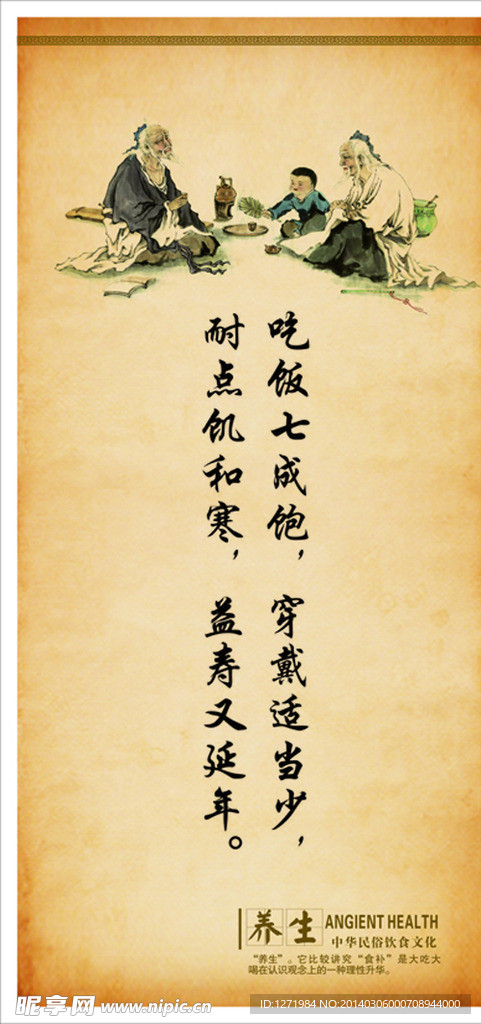 吃饭七成饱，穿戴适当少，
耐点饥和寒，益寿又延年。
养生 ANGIENT HEALTH
中华民俗饮食文化
“养生”。它比较讲究“食补”是大吃大
喝在认识观念上的一种理性升华。
昵享网 www.nipic.cn
ID:1271984 NO:20140306000708944000